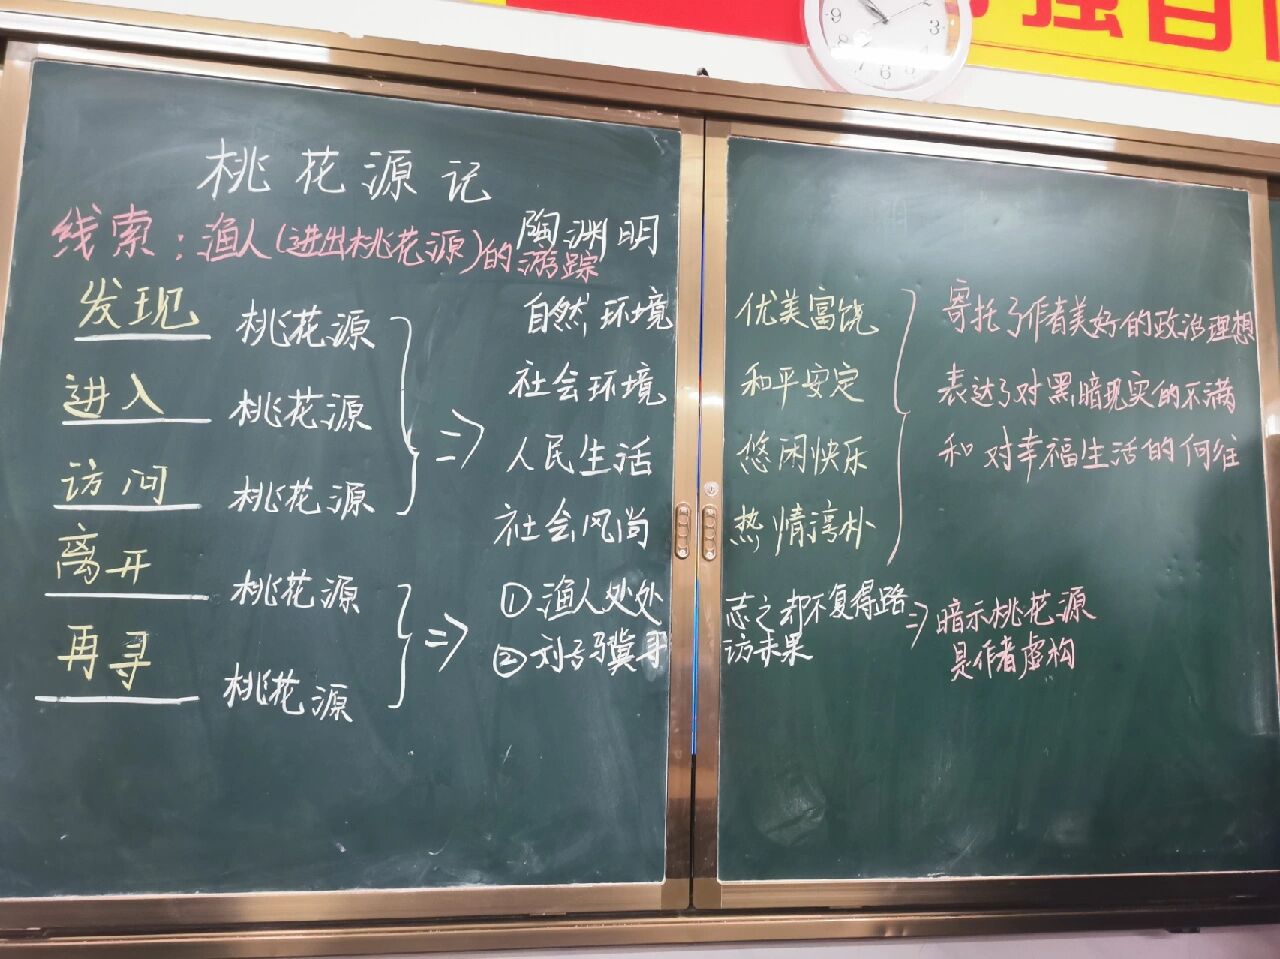 强自
9
3
8
4
7
6
5
桃花源记
陶渊明
线索：渔人(进出桃花源)的游踪
发现 桃花源
进入 桃花源
访问 桃花源
离开 桃花源
再寻 桃花源
自然环境 优美富饶
社会环境 和平安定
人民生活 悠闲快乐
社会风尚 热情淳朴
寄托了作者美好的政治理想
表达了对黑暗现实的不满
和对幸福生活的向往
①渔人处处志之却不复得路
②刘子骥寻访未果
⇒暗示桃花源
是作者虚构